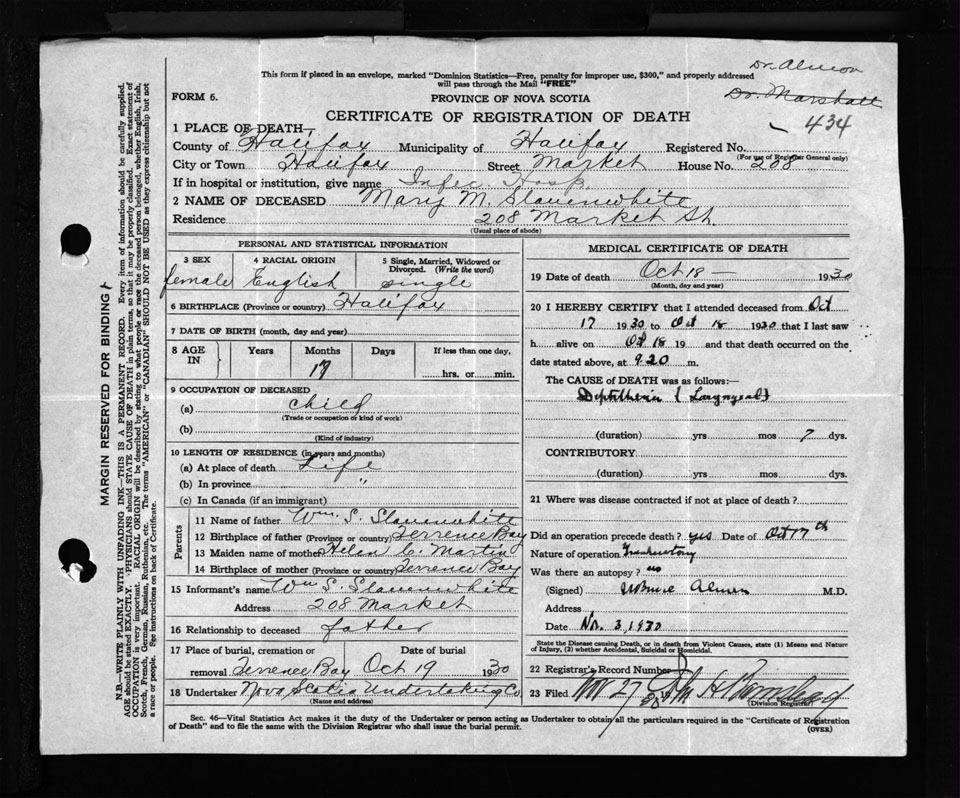 Dr. Almon
This form if placed in an envelope, marked "Dominion Statistics—Free, penalty for improper use, $300," and properly addressed
will pass through the Mail "FREE"
Dr. Marshall
FORM 6.
PROVINCE OF NOVA SCOTIA
CERTIFICATE OF REGISTRATION OF DEATH
434
1 PLACE OF DEATH—
County of Halifax Municipality of Halifax Registered No.
(For use of Registrar General only)
City or Town Halifax Street Market House No. 208
If in hospital or institution, give name Infec Hosp.
2 NAME OF DECEASED Mary M. Slauenwhite
Residence 208 Market St.
(Usual place of abode)
PERSONAL AND STATISTICAL INFORMATION
3 SEX 4 RACIAL ORIGIN 5 Single, Married, Widowed or Divorced. (Write the word)
female English single
6 BIRTHPLACE (Province or country) Halifax
7 DATE OF BIRTH (month, day and year)
8 AGE IN Years Months Days If less than one day,
17
hrs. or min.
9 OCCUPATION OF DECEASED
(a) child
(Trade or occupation or kind of work)
(b)
(Kind of industry)
10 LENGTH OF RESIDENCE (in years and months)
(a) At place of death Life
(b) In province "
(c) In Canada (if an immigrant)
Parents
11 Name of father Wm. S. Slauenwhite
12 Birthplace of father (Province or country) Terrence Bay
13 Maiden name of mother Helen C. Martin
14 Birthplace of mother (Province or country) Terrence Bay
15 Informant's name Wm S. Slauenwhite
Address 208 Market
16 Relationship to deceased father
17 Place of burial, cremation or Date of burial
removal Terrence Bay Oct 19 1930
18 Undertaker Nova Scotia Undertaking Co.
(Name and address)
MEDICAL CERTIFICATE OF DEATH
19 Date of death Oct 18 — 1930
(Month, day and year)
20 I HEREBY CERTIFY that I attended deceased from Oct
17 1930 to Oct 18 1930 that I last saw
h alive on Oct 18 19 and that death occurred on the
date stated above, at 9.20 m.
The CAUSE OF DEATH was as follows:—
Diphtheria (Laryngeal)
(duration) yrs mos 7 dys.
CONTRIBUTORY
(duration) yrs mos dys.
21 Where was disease contracted if not at place of death?
Did an operation precede death? yes Date of Oct 17th
Nature of operation Tracheotomy
Was there an autopsy? no
(Signed) Almon M.D.
Address
Date Nov. 3, 1930
State the Disease causing Death, or in death from Violent Causes, state (1) Means and Nature of Injury, (2) whether Accidental, Suicidal or Homicidal.
22 Registrar's Record Number
23 Filed Nov 27 1930
(Division Registrar)
Sec. 46—Vital Statistics Act makes it the duty of the Undertaker or person acting as Undertaker to obtain all the particulars required in the "Certificate of Registration
of Death" and to file the same with the Division Registrar who shall issue the burial permit.
(OVER)
MARGIN RESERVED FOR BINDING
N.B.—WRITE PLAINLY WITH UNFADING INK—THIS IS A PERMANENT RECORD. Every item of information should be carefully supplied.
AGE should be stated EXACTLY. PHYSICIANS should STATE CAUSE OF DEATH in plain terms, so that it may be properly classified. Exact statement of
OCCUPATION is very important. RACIAL ORIGIN will be described by stating to what people or race the deceased person belonged, whether English, Irish,
Scotch, French, German, Russian, Ruthenian, etc. The terms "AMERICAN" or "CANADIAN" SHOULD NOT BE USED as they express citizenship but not
a race or people. See instructions on back of Certificate.